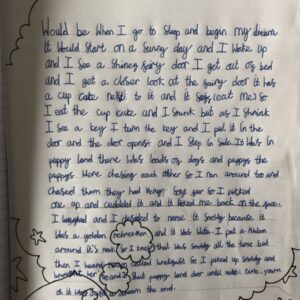 Would be when I go to sleep and begin my dream
it Would start on a sunny day and I Woke up
and I see a Shiney fairy door I get out of bed
and I get a closer look at the fairy door it has
a cup cake next to it and it Says (eat me) so
I eat the cup cake and I Srunk but as I Shrink
I see a key I turn the key and put it in the
door and the door opens and I Step in side. It was in
puppy land there was loads of dogs and puppys the
puppys Were chasing each other so I ran around too and
Chased them they had long fur so I picked
one up and cuddled it and it licked me back on the
I laughed and I to name it because it
was a golden and it was I put a
around it's neck so I knew that was all the time but
then I heard called so I picked up and
her to that puppy land door until next time.
oh it was the end.